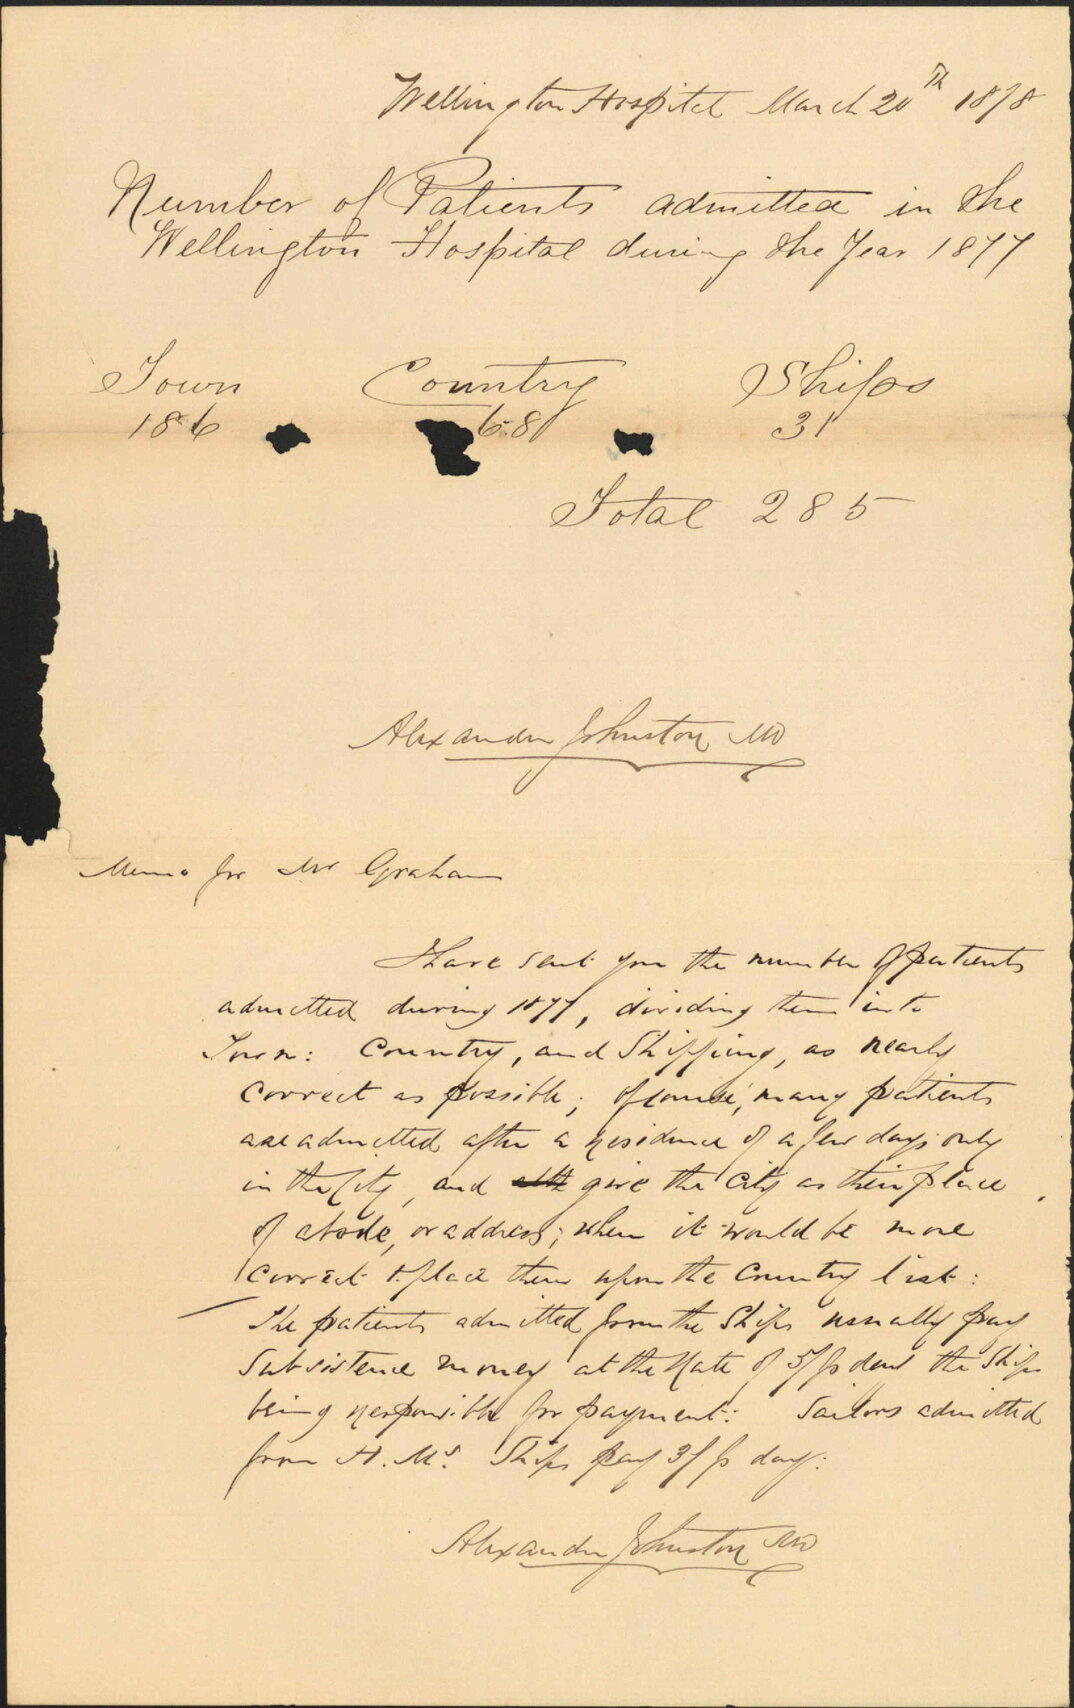 Wellington Hospital March 20th 1878
Number of Patients admitted in the
Wellington Hospital during the Year 1877
Town Country Ships
186 68 31
Total 285
Alexander Johnston MD
Memo for Mr Graham
I have sent you the number of patients
admitted during 1877, dividing them into
Town: Country, and Shipping, as nearly
correct as possible; of course, many patients
are admitted after a residence of a few days only
in the City, and give the City as their place
of abode, or address; when it would be more
correct to place them upon the Country list:
The patients admitted from the Ships usually pay
Subsistence money at the Rate of 5/ p the Ship
being responsible for payment: Sailors admitted
from H. Ms. Ships pay 3/ p day:
Alexander Johnston MD